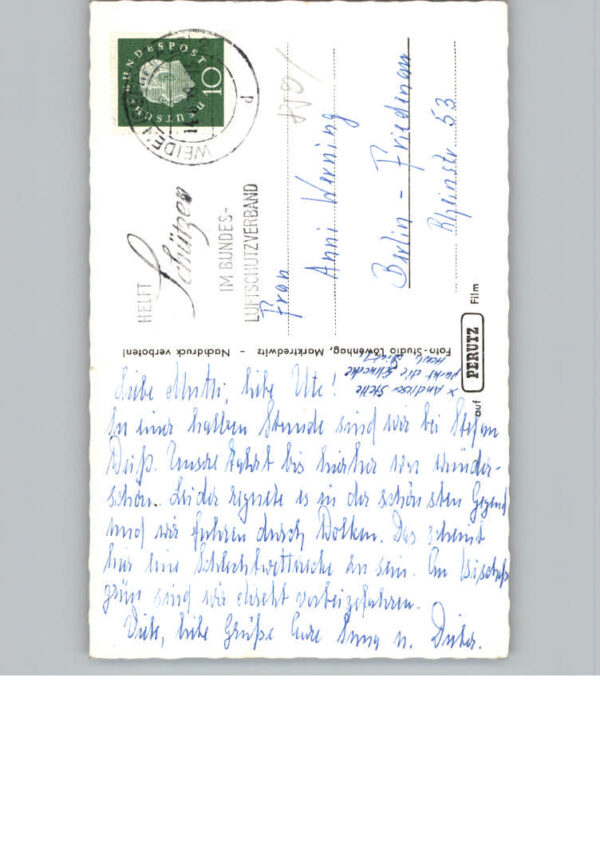 Liebe Mutti, liebe Ute!
In einer halben Stunde sind wir bei Stefan
Weiß. Unsere Fahrt bis hierher war wunder-
schön. Leider regnete es in der schönsten Gegend
und wir fuhren durch Wolken. Das scheint
hier eine Schlechtwetterecke zu sein. An Bischofs
grün sind wir direkt vorbeigefahren.
Viele, liebe Grüße Eure Inna u. Dieter.
x An dieser Stelle
parkt die Schnecke
Foto-Studio Löwenhag, Marktredwitz - Nachdruck verboten!
auf PERUTZ Film
DEUTSCHE BUNDESPOST
10
WEIDEN
HELFT
Schützen
IM BUNDES-
LUFTSCHUTZVERBAND
Frau
Anni Werning
Berlin - Friedenau
Rheinstr 53